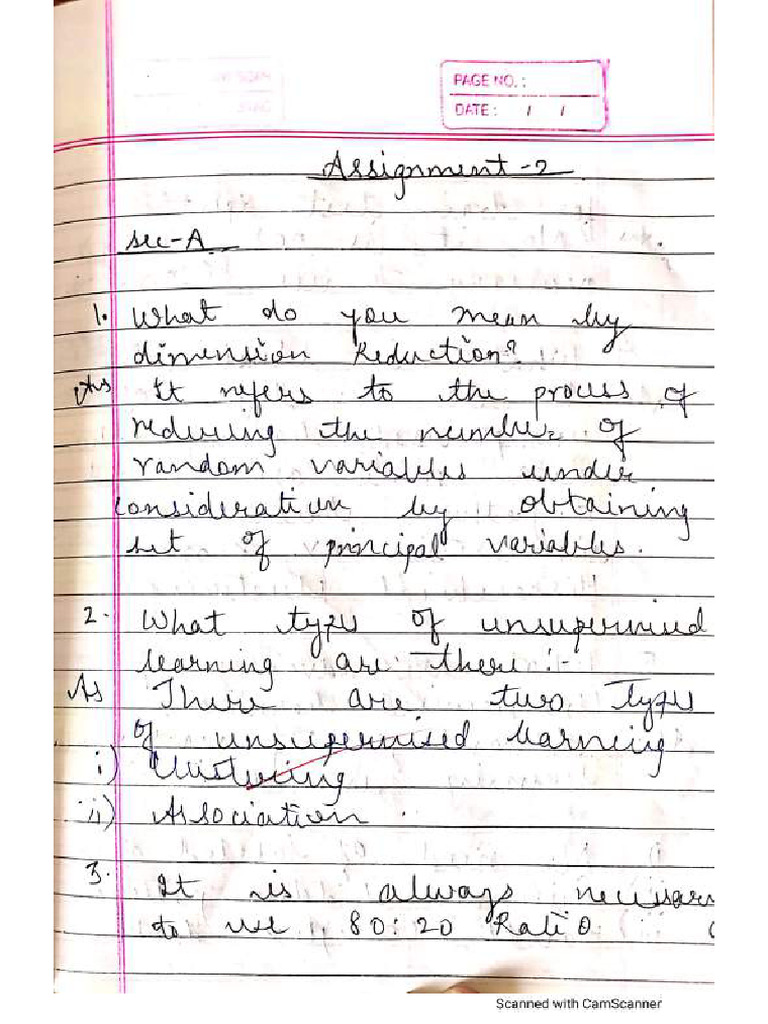 PAGE NO. :
DATE : / /
Assignment -2
sec-A
1. What do you mean by
dimension Reduction?
Ans It refers to the process of
reducing the number of
random variables under
consideration by obtaining
set of principal variables.
2. What type of unsupervised
learning are there :-
As There are two types
of unsupervised learning
i) Clustering
ii) Association .
3. It is always necessary
to use 80:20 Ratio
Scanned with CamScanner